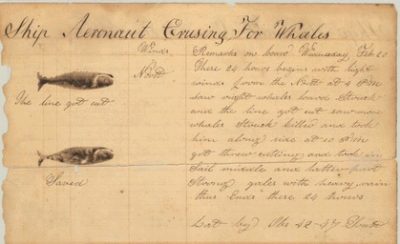 Ship Aeronaut Crusing For Whales
Winds
North
The line got cut
Saved
Remarks on board Wednesday Feb 20
These 24 hours begins with light
winds from the North at 4 P.M
saw right whales lowed Struck
and the line got cut saw more
whales Struck killed and took
him along side at 10 P.M
got threw cutting and took in
Sail middle and latter part
Strong gales with heavy rain
thus Ends these 24 hours
Lat by Obs 42-47 South